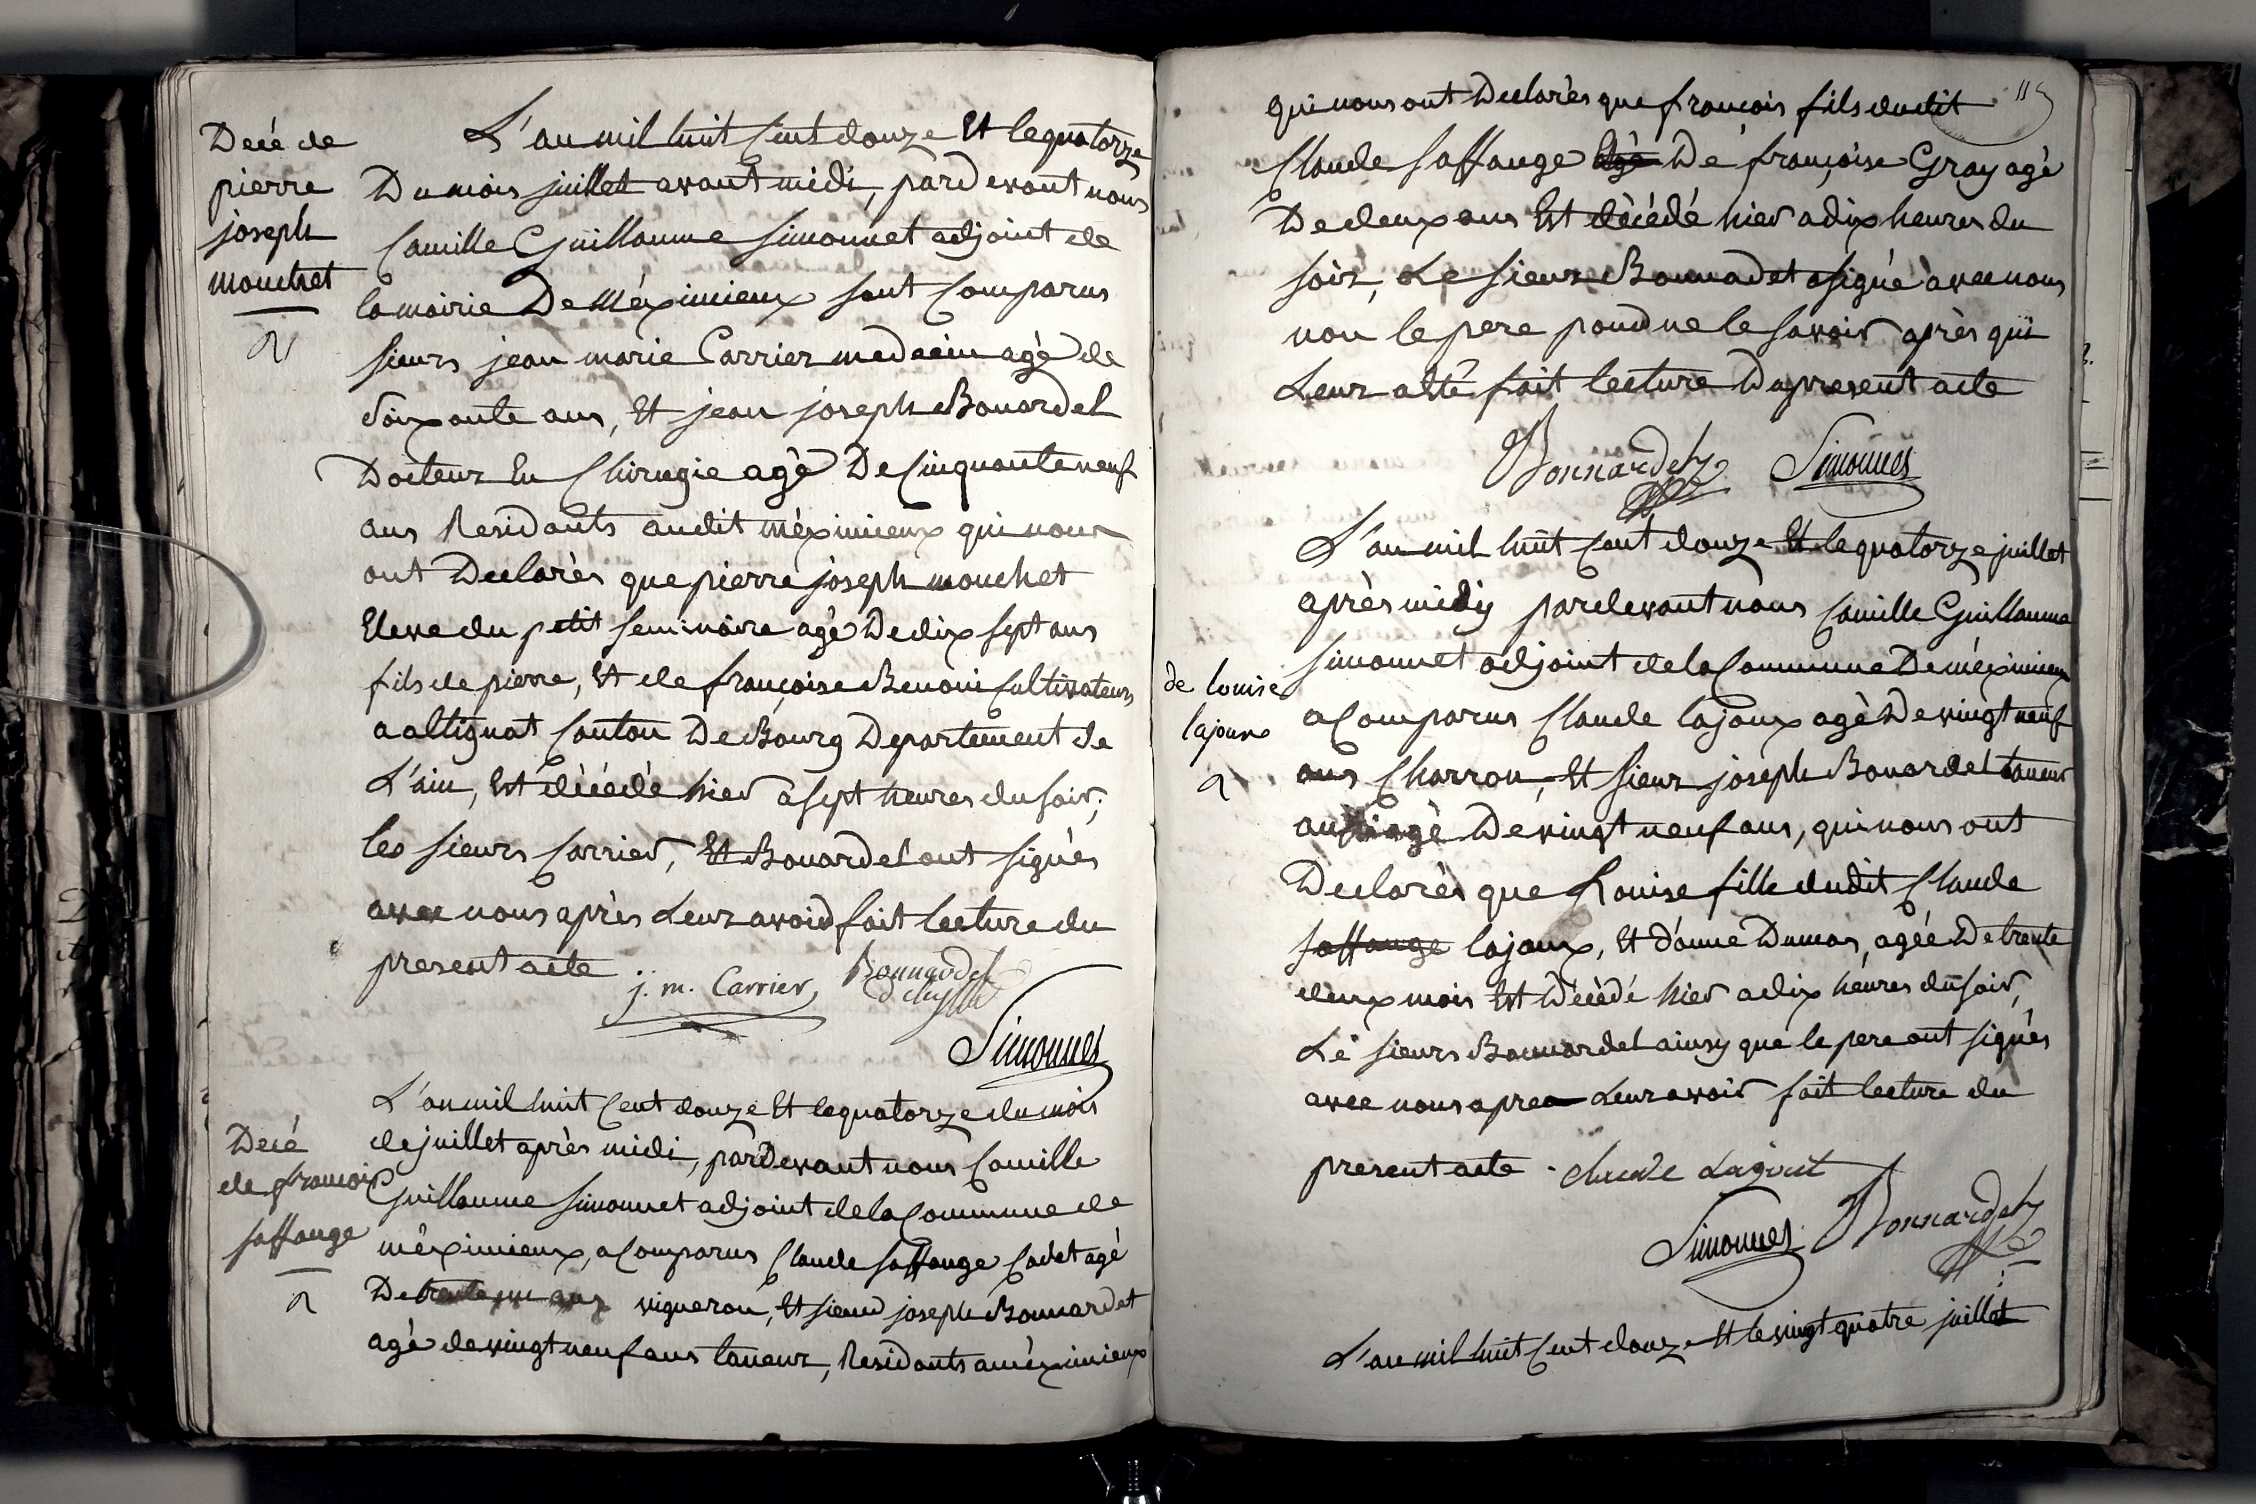 Decé de
pierre
joseph
mouchet
L'an mil huit Cent douze Et le quatorze
Du mois juillet avant midi, pardevant nous
Camille Guillaume Simonnet adjoint de
la mairie De Méximieux sont Comparus
sieurs jean marie Carrier medecin agé de
Soixante ans, Et jean joseph Bonardel
Docteur En Chirugie agé De Cinquante neuf
ans Residants audit méximieux qui nous
ont Declarés que pierre joseph mouchet
Eleve du petit seminaire agé De dix sept ans
fils de pierre, Et de françoise Benoni Cultivateurs
a altignat Canton De Bourg Departement de
L'ain, Est décédé hier a sept heures du soir;
les sieurs Carrier, Et Bonardel ont signés
avec nous après Leur avoir fait lecture du
present acte
j. m. Carrier Bonnardel
Simonnet
Decé
de françois
saffange
L'an mil huit Cent douze Et le quatorze du mois
de juillet après midi, pardevant nous Camille
Guillaume Simonnet adjoint de la Commune de
méximieux, a Comparus Claude saffange Cadet agé
De trente ans vigneron, Et sieur joseph Bonnardet
agé de vingt neuf ans taneur, Residants a méximieux
115
qui nous ont Declarés que françois fils dudit
Claude saffange agé De françoise Gray agé
De deux ans Est décédé hier a dix heures du
soir, Le sieur Bonnardet a signé avec nous
non le pere pour ne le savoir après qui
Leur a été fait lecture Du present acte
Bonnardel Simonnet
L'an mil huit Cent douze Et le quatorze juillet
après midy pardevant nous Camille Guillaume
Simonnet adjoint de la Commune De méximieux
de Louise
lajoux
a Comparus Claude lajoux agé De vingt neuf
ans Charron, Et sieur joseph Bonardel taneur
aussi agé De vingt neuf ans, qui nous ont
Declarés que Louise fille dudit Claude
saffange lajoux, Et d'anne Dumas, agée De trente
deux mois Est Décédé hier a dix heures du soir,
Le sieurs Bonnardel ainsy que le pere ont signés
avec nous apres Leur avoir fait lecture du
present acte
Simonnet Bonnardel
L'an mil huit Cent douze Et le vingt quatre juillet